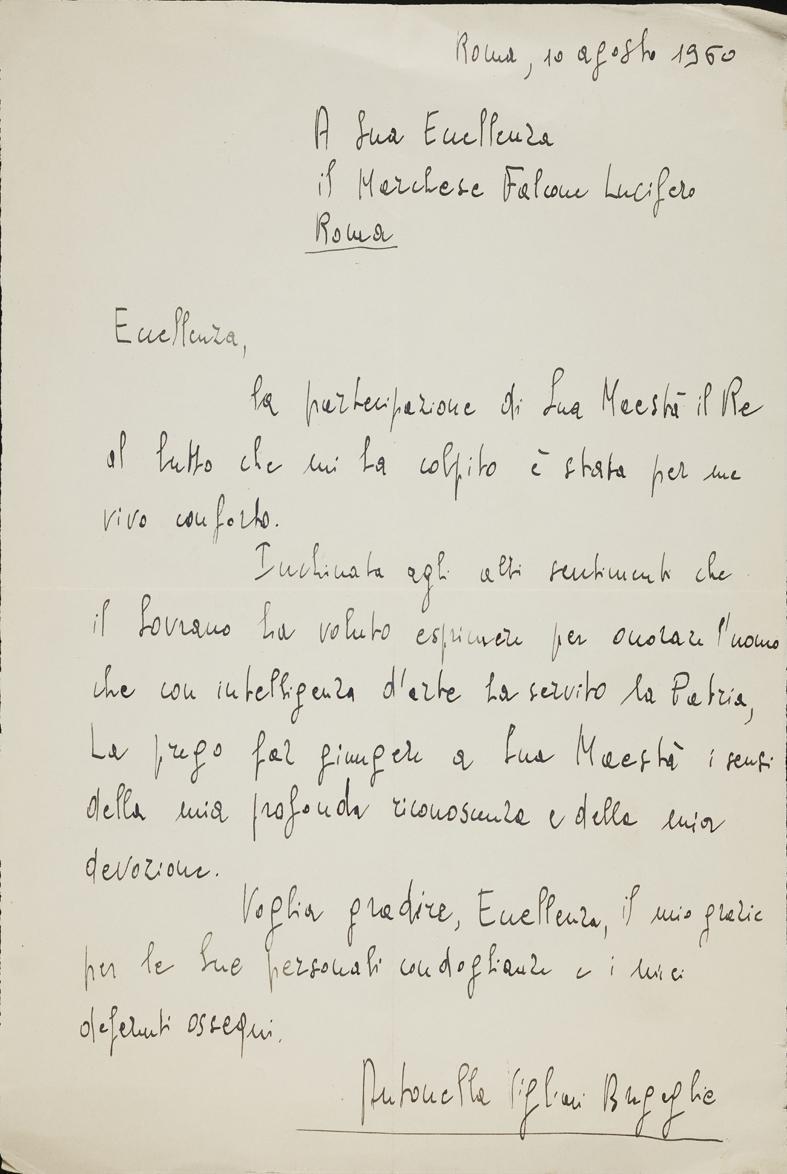 Roma, 10 agosto 1960
A Sua Eccellenza
il Marchese Falcone Lucifero
Roma
Eccellenza,
la partecipazione di Sua Maestà il Re
al lutto che mi ha colpito è stata per me
vivo conforto.
Inchinata agli alti sentimenti che
il Sovrano ha voluto esprimere per onorare l'uomo
che con intelligenza d'arte ha servito la Patria,
La prego far giungere a Sua Maestà i sensi
della mia profonda riconoscenza e della mia
devozione.
Voglia gradire, Eccellenza, il mio grazie
per le Sue personali condoglianze e i miei
deferenti ossequi.
Antonella Vigliani Bragaglia